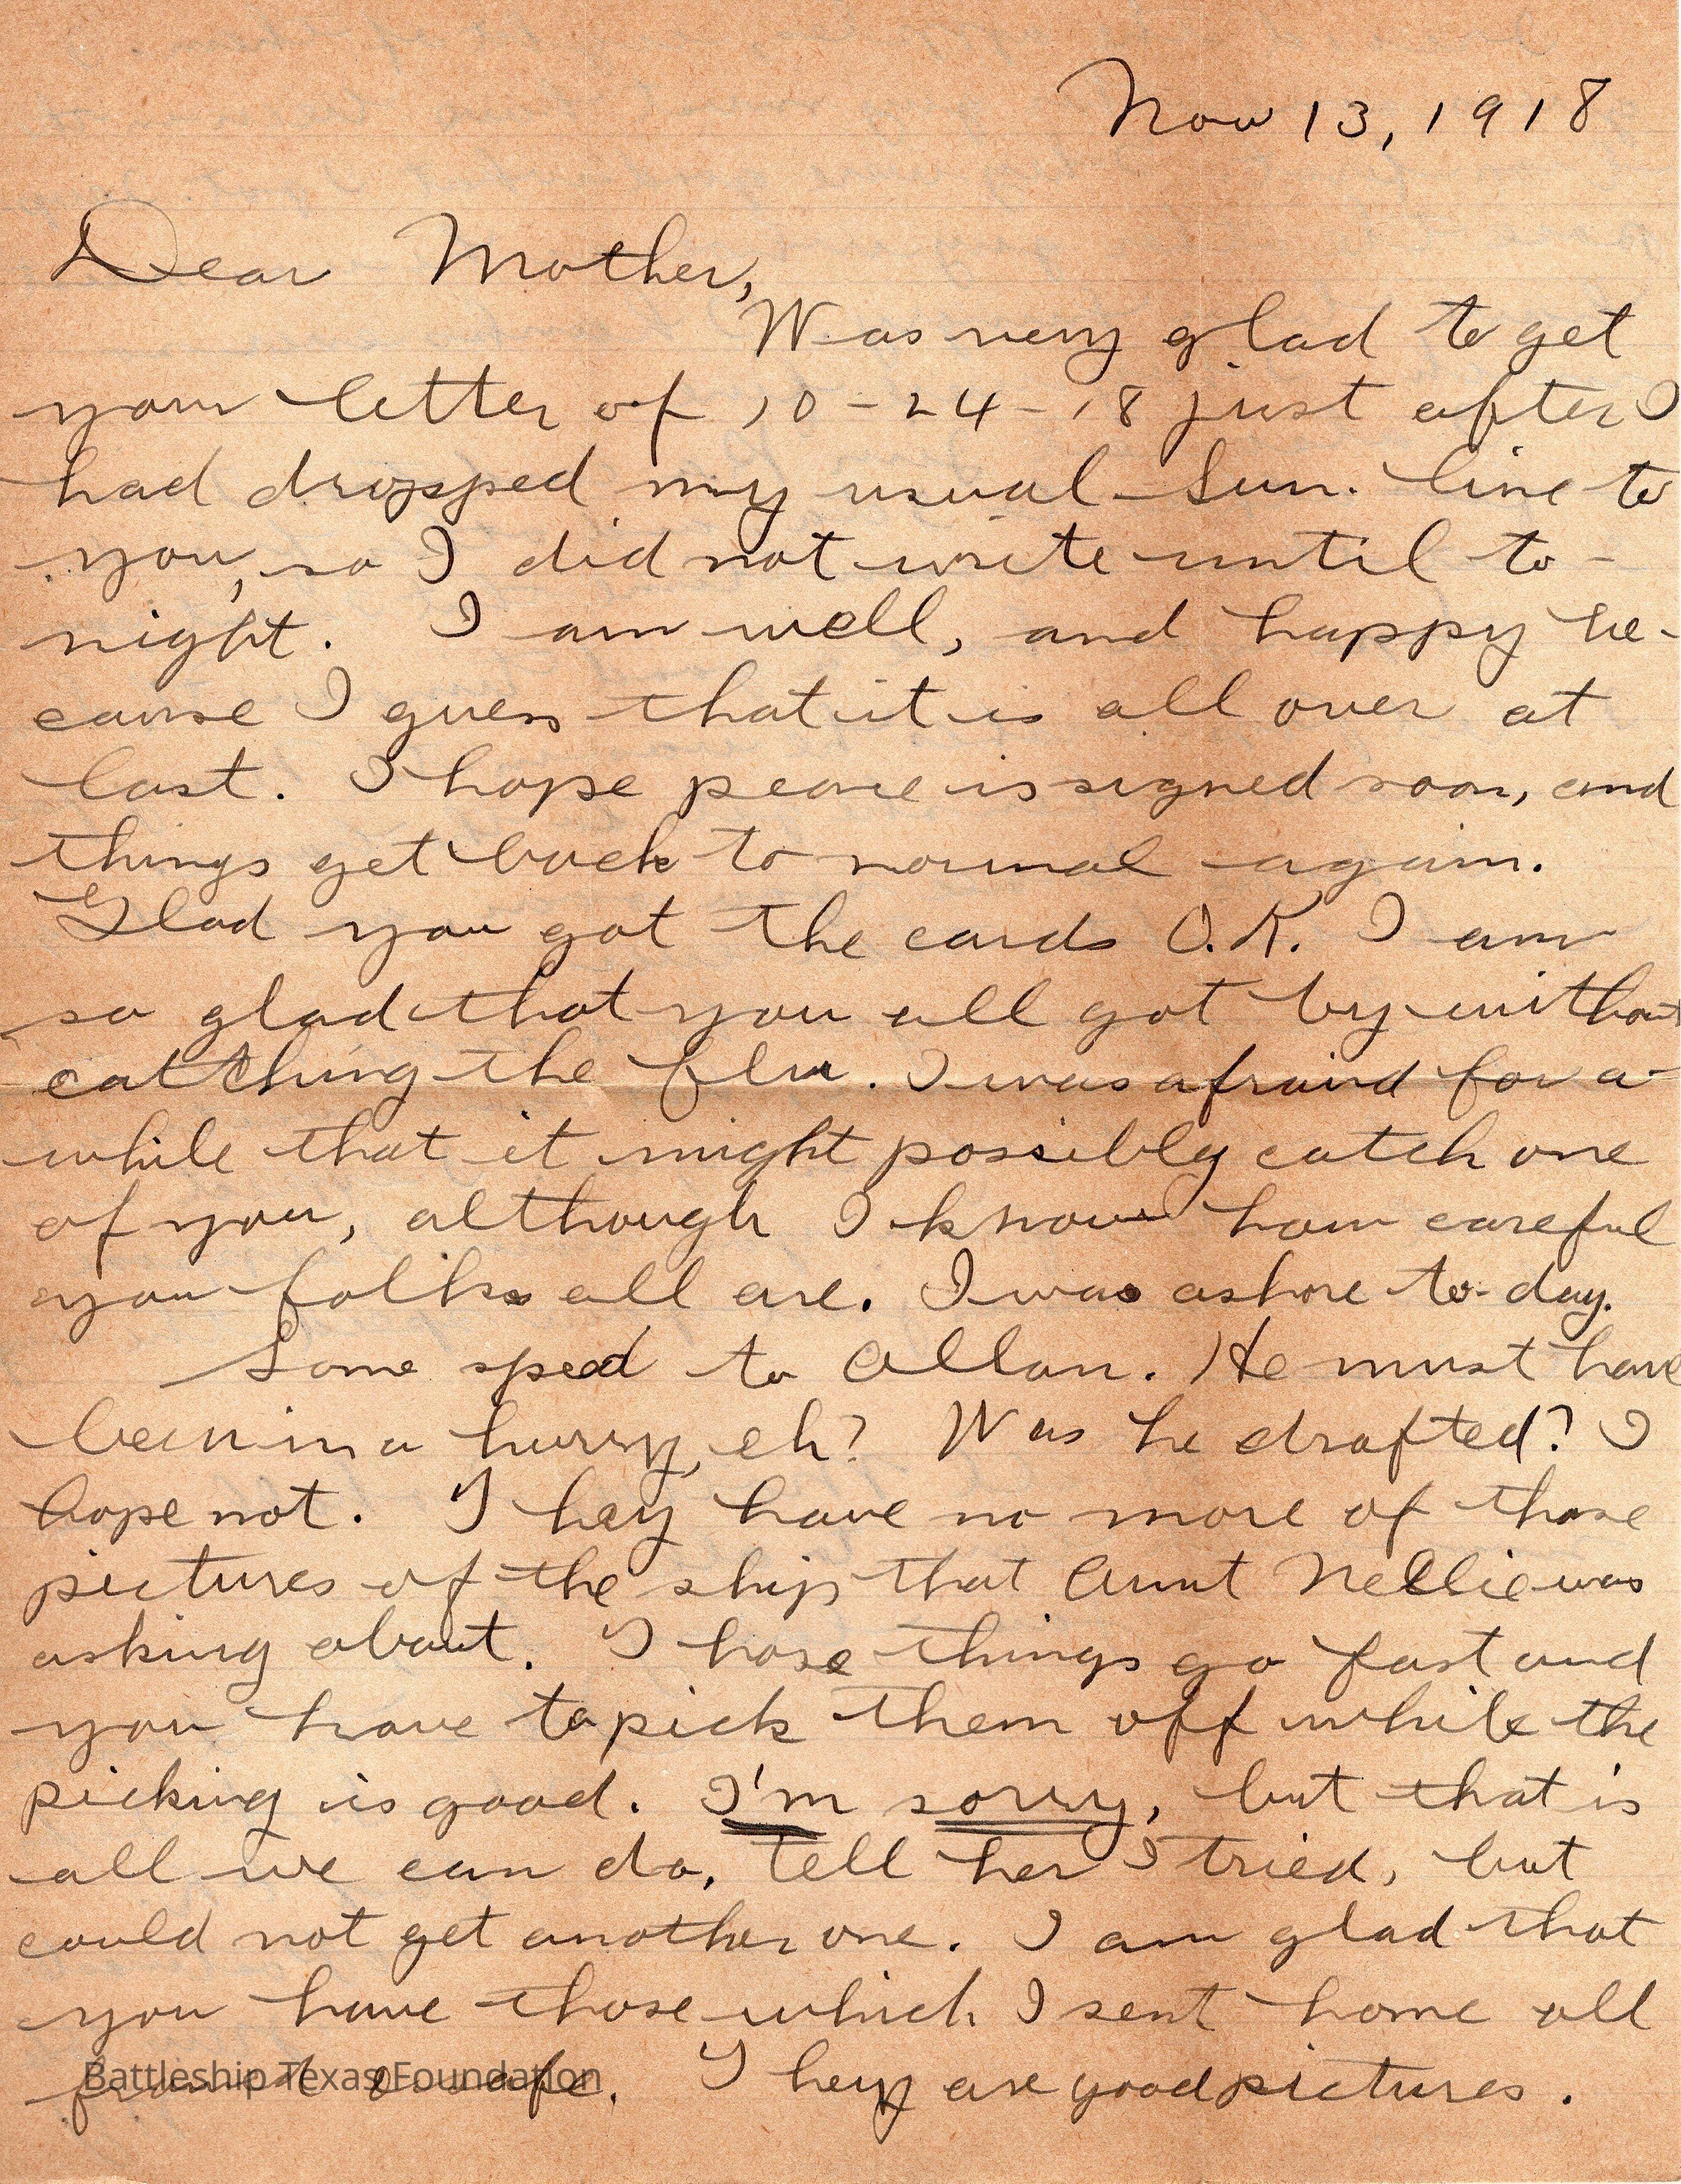 Nov 13, 1918
Dear Mother,
Was very glad to get
your letter of 10-24-18 just after I
had dropped my usual Sun. line to
you, so I did not write until to-
night. I am well, and happy be-
cause I guess that it is all over at
last. I hope peace is signed soon, and
things get back to normal again.
Glad you got the cards O.K. I am
so glad that you all got by without
catching the flu. I was afraid for a
while that it might possibly catch one
of you, although I know how careful
you folks all are. I was ashore to-day.
Some speed to Allan. He must have
been in a hurry, eh? Was he drafted? I
hope not. They have no more of those
pictures of the ship that Aunt Nellie was
asking about. Those things go fast and
you have to pick them off while the
picking is good. I'm sorry, but that is
all we can do, tell her I tried, but
could not get another one. I am glad that
you have those which I sent home all
framed & safe. They are good pictures.
Battleship Texas Foundation